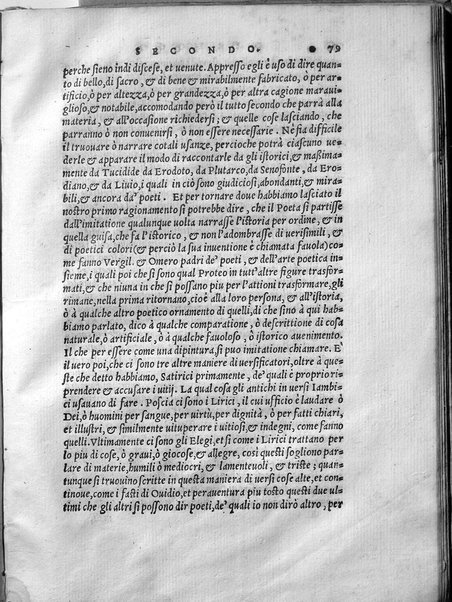 SECONDO. 79
perche sieno indi discese, et uenute. Appresso egli è uso di dire quan-
to di bello, di sacro, & di bene & mirabilmente fabricato, ò per ar-
tificio, ò per altezza, ò per grandezza, ò per altra cagione maraui-
glioso, & notabile, accomodando però il tutto secondo che parrà alla
materia, & all'occasione richiedersi; & quelle cose lasciando, che
parranno ò non conuenirsi, ò non essere necessarie. Ne fia difficile
il trouare ò narrare cotali usanze, percioche potrà ciascuno ue-
derle & apparare il modo di raccontarle da gli istorici, & maßima-
mente da Tucidide da Erodoto, da Plutarco, da Senofonte, da Ero-
diano, & da Liuio, i quali in ciò sono giudiciosi, abondanti, & mira-
bili, & ancora da' poeti. Et per tornare doue habbiamo lasciato il
nostro primo ragionamento si potrebbe dire, che il Poeta si partisse
dall'imitatione qualunque uolta narrasse l'istoria per ordine, & in
quella guisa, che fa l'istorico, & non l'adombrasse di uerisimili, & di
di poetici colori (& perciò la sua inuentione è chiamata fauola) co-
me fanno Vergil. & Omero padri de' poeti, & dell'arte poetica in-
sieme, i quali poi che si sono qual Proteo in tutt'altre figure trasfor-
mati, & che niuna in che si possano piu per l'attioni trasformare, gli
rimane, nella prima ritornano, cioè alla loro persona, & all'istoria,
ò à qualche altro poetico ornamento di quelli, di che sino à qui hab-
biamo parlato, dico à qualche comparatione, ò descrittione di cosa
naturale, ò artificiale, ò à qualche fauoloso, ò istorico auenimento.
Il che per essere come una dipintura, si puo imitatione chiamare. E'
il uero poi, che ci sono tre altre maniere di uersificatori, oltre à que-
ste che detto habbiamo, Satirici primamente, de' quali è proprio ri-
prendere & accusare i uitij. La qual cosa gli antichi in uersi Iambi-
ci usauano di fare. Poscia ci sono i Lirici, il cui ufficio è laudare ò
Dei, ò huomini per sangue, per uirtù, per dignità, ò per fatti chiari,
et illustri, & similmente uituperare i uitiosi, & indegni, come fanno
quelli. Vltimamente ci sono gli Elegi, et si come i Lirici trattano per
lo piu di cose, ò graui, ò giocose, & allegre, così questi sogliono par-
lare di materie, humili ò mediocri, & lamenteuoli, & triste; quan-
tunque si trouino scritte in questa maniera di uersi cose alte, et con-
tinoue, come i fasti di Ouidio, et perauentura piu tosto questi due ul-
timi che gli altri si possono dir poeti, de' quali io non dirò altro, per